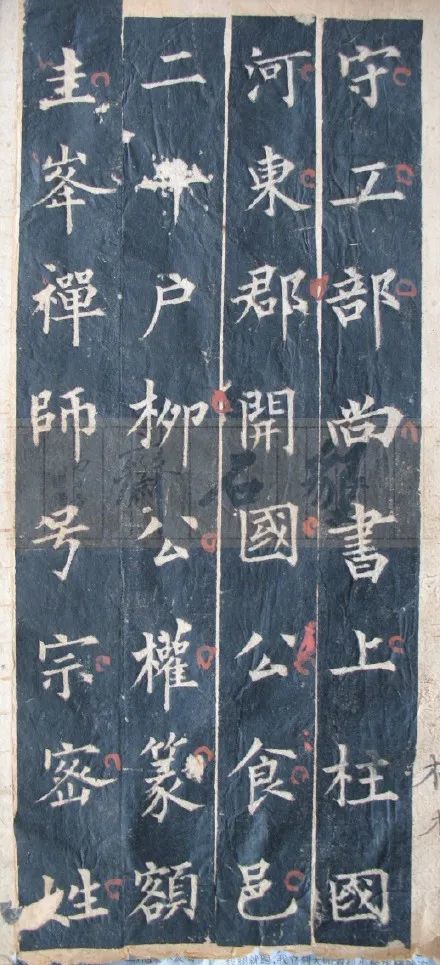 守工部尚書上柱國
河東郡開國公食邑
二千户柳公權篆額
圭峯禪師号宗密姓